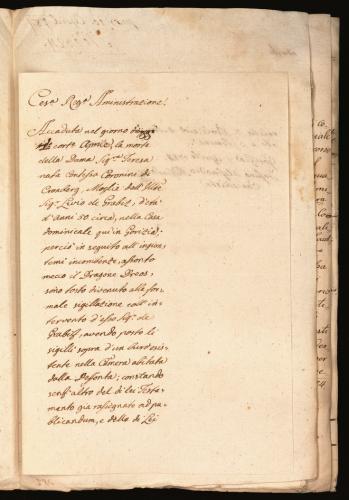 Ces.ª Reg.ª Aministrazione!
Accaduta nel giorno
cort.e Aprile, la morte
della Dama Sig.ra Teresa
nata Contessa Coronini de
Cronberg, Moglie dell' Illre
Sig. Livio de Grabiz, d'età
d'anni 50 circa, nella Casa
dominicale qui in Gorizia;
perciò in seguito all' ingiun=
temi incombenze, assonto
meco il Dragone Dreos,
sono tosto divenuto alla for=
male sigillazione coll' in=
tervento d'esso Sig.r de
Grabiz, avendo posto li
sigilli sopra d'un esis=
tente nella Camera abitata
dalla Defonta; constando
altro del di lei Testa=
mento già rassegnato ad pu=
blicandum, e dello di Lei